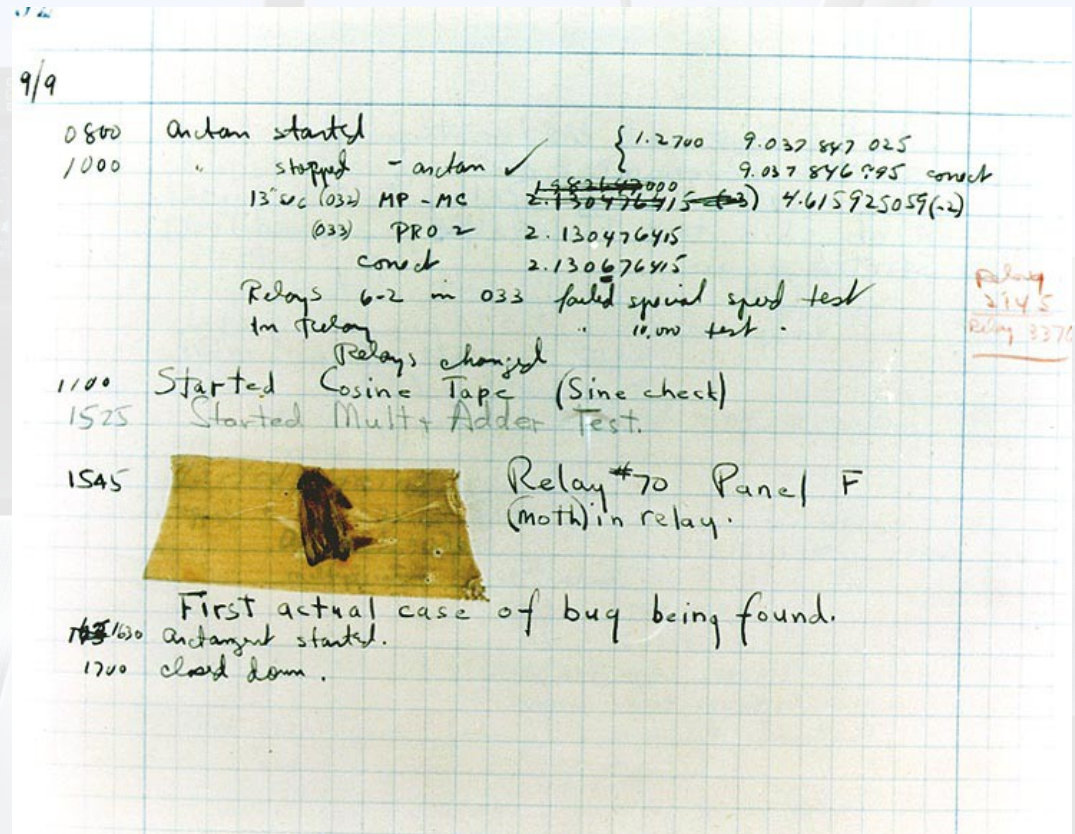 9/9
0800 antan started { 1.2700 9.037 847 025
1000 " stopped - antan ✓ 9.037 846 795 conect
13" sec (032) MP - MC 2.130476415 (-3) 4.615925059(-2)
(033) PRO 2 2.130476415
conect 2.130676415
Relays 6-2 in 033 failed special speed test
In Relay " 10,000 test.
Relay
2145
Relay 3370
Relays changed
1100 Started Cosine Tape (Sine check)
1525 Started Mult + Adder Test.
1545 Relay #70 Panel F
(moth) in relay.
First actual case of bug being found.
1630 antangent started.
1700 closed down.